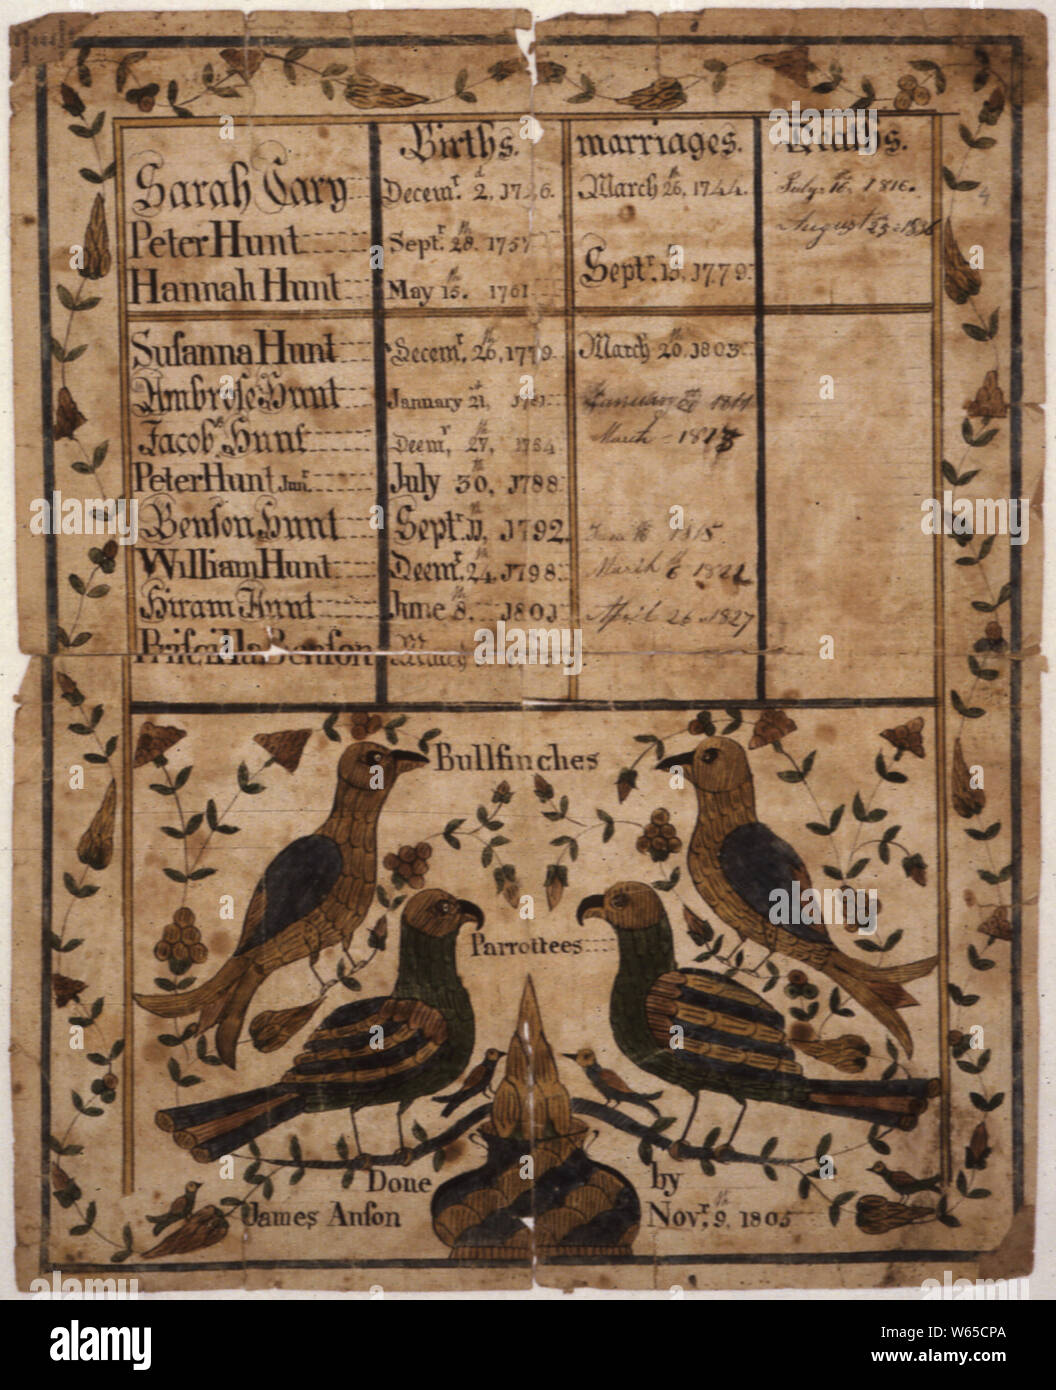 Births. marriages. Deaths.
Sarah Cary Decemr. 2d, 1746. March 26th, 1744. July 16th, 1816.
August 23
Peter Hunt Septr. 28th. 1757
Hannah Hunt May 15th. 1761 Septr. 15th, 1779.
Susanna Hunt Decemr. 26th, 1779 March 20th, 1803
Ambrose Hunt January 21st, 1781 January 1814
Jacob Hunt Deemr, 27th, 1784 March - 1813
Peter Hunt Junr. July 30th, 1788
Benson Hunt Septr. 11th, 1792. 1815
William Hunt Deemr. 24th, 1798 March 6th 1822
Hiram Hunt June 8th, 1801 April 26, 1827
Priscilla Benson
Bullfinches
Parrottees
Done by
James Anson Novr. 9th, 1805
alamy
Image ID: W65CPA
www.alamy.com